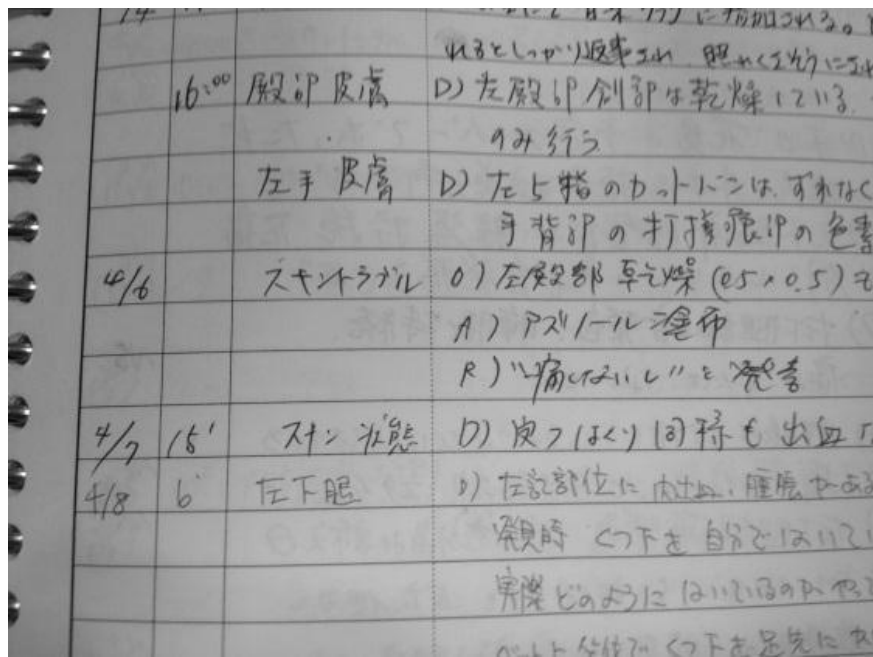 れるとしっかり返事され、照れくさそうにされ
16:00 殿部 皮膚 D) 左殿部 創部は乾燥している。
のみ行う
左手 皮膚 D) 左5指のカットバンは、ずれなく
手背部の打撲痕部の色素
4/6 スキントラブル O) 左殿部 乾燥 (0.5×0.5)
A) アズノール塗布
R) "痛くないし" と発言
4/7 15' スキン 状態 D) 皮フはくり 同様も 出血
4/8 6' 左下腿 D) 左記部位に 内出血、腫脹がある
発見時 くつ下を 自分ではいてい
実際どのように はいているのか やって
ベット上 座位で くつ下を足先に